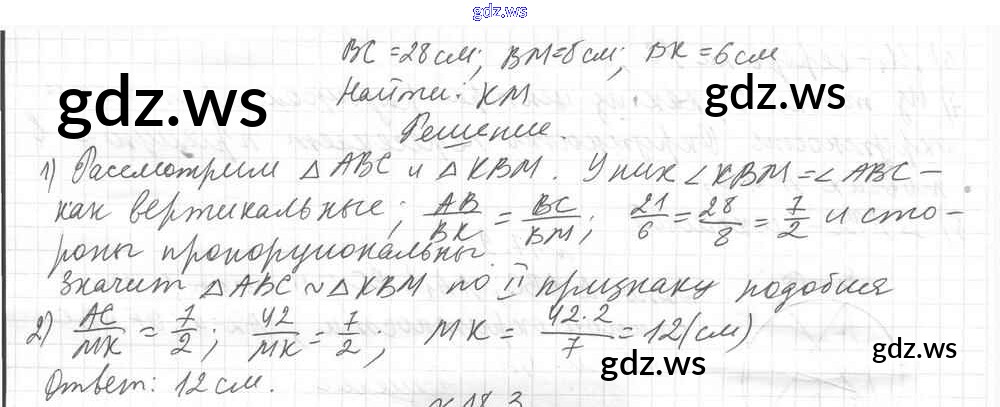 gdz.ws
BC = 28 см; BM = 8 см; BK = 6 см
gdz.ws
gdz.ws
Найти: KM
Решение.
1) Рассмотрим △ABC и △KBM. У них ∠KBM = ∠ABC –
как вертикальные; AB/BK = BC/BM; 21/6 = 28/8 = 7/2 и сто-
роны пропорциональны.
Значит △ABC ~ △KBM по II признаку подобия
2) AC/MK = 7/2; 42/MK = 7/2; MK = 42·2/7 = 12 (см)
gdz.ws
gdz.ws
Ответ: 12 см.